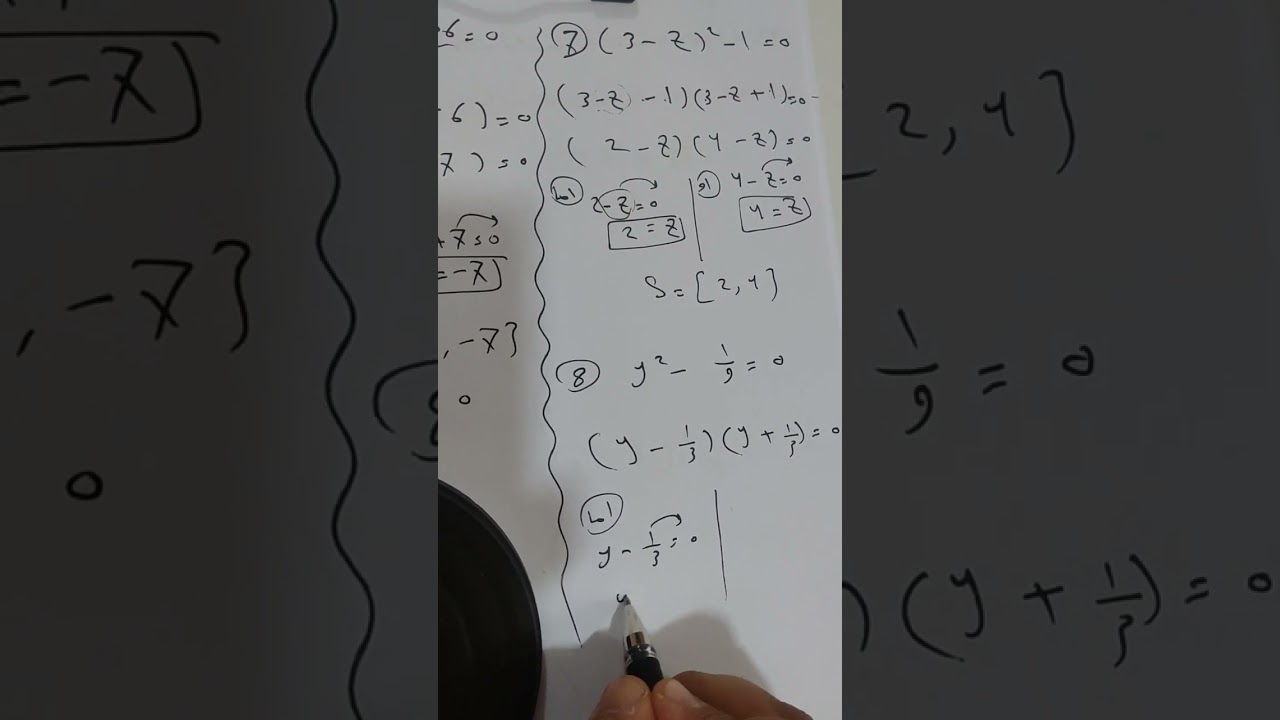 6 = 0
6) = 0
7) = 0
+ 7 = 0
= -7
, -7}
0
⑦ (3 - z)² - 1 = 0
(3 - z - 1)(3 - z + 1) = 0
(2 - z)(4 - z) = 0
اما 2 - z = 0
2 = z
او 4 - z = 0
4 = z
S = {2, 4}
⑧ y² - 1/9 = 0
(y - 1/3)(y + 1/3) = 0
اما
y - 1/3 = 0
y